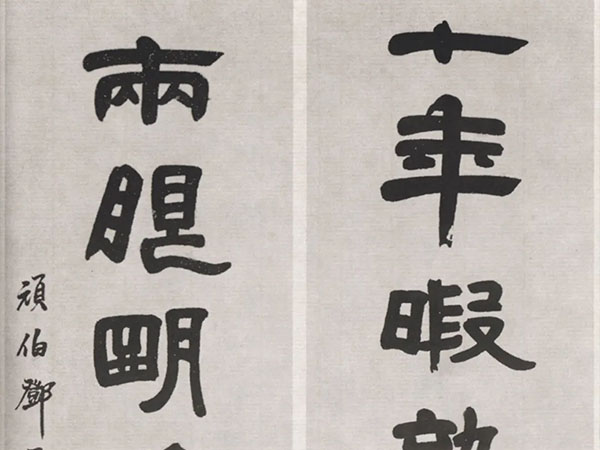 十年暇
兩眼朙
頑伯鄧